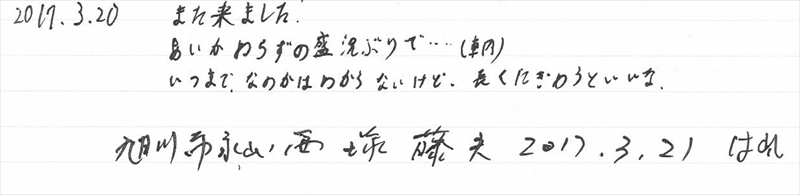 2017.3.20 また来ました!
あいかわらずの盛況ぶりで…(車内)
いつまでなのかはわからないけど、長くにぎわうといいな。
旭川市永山 西塚 藤夫 2017.3.21 はれ